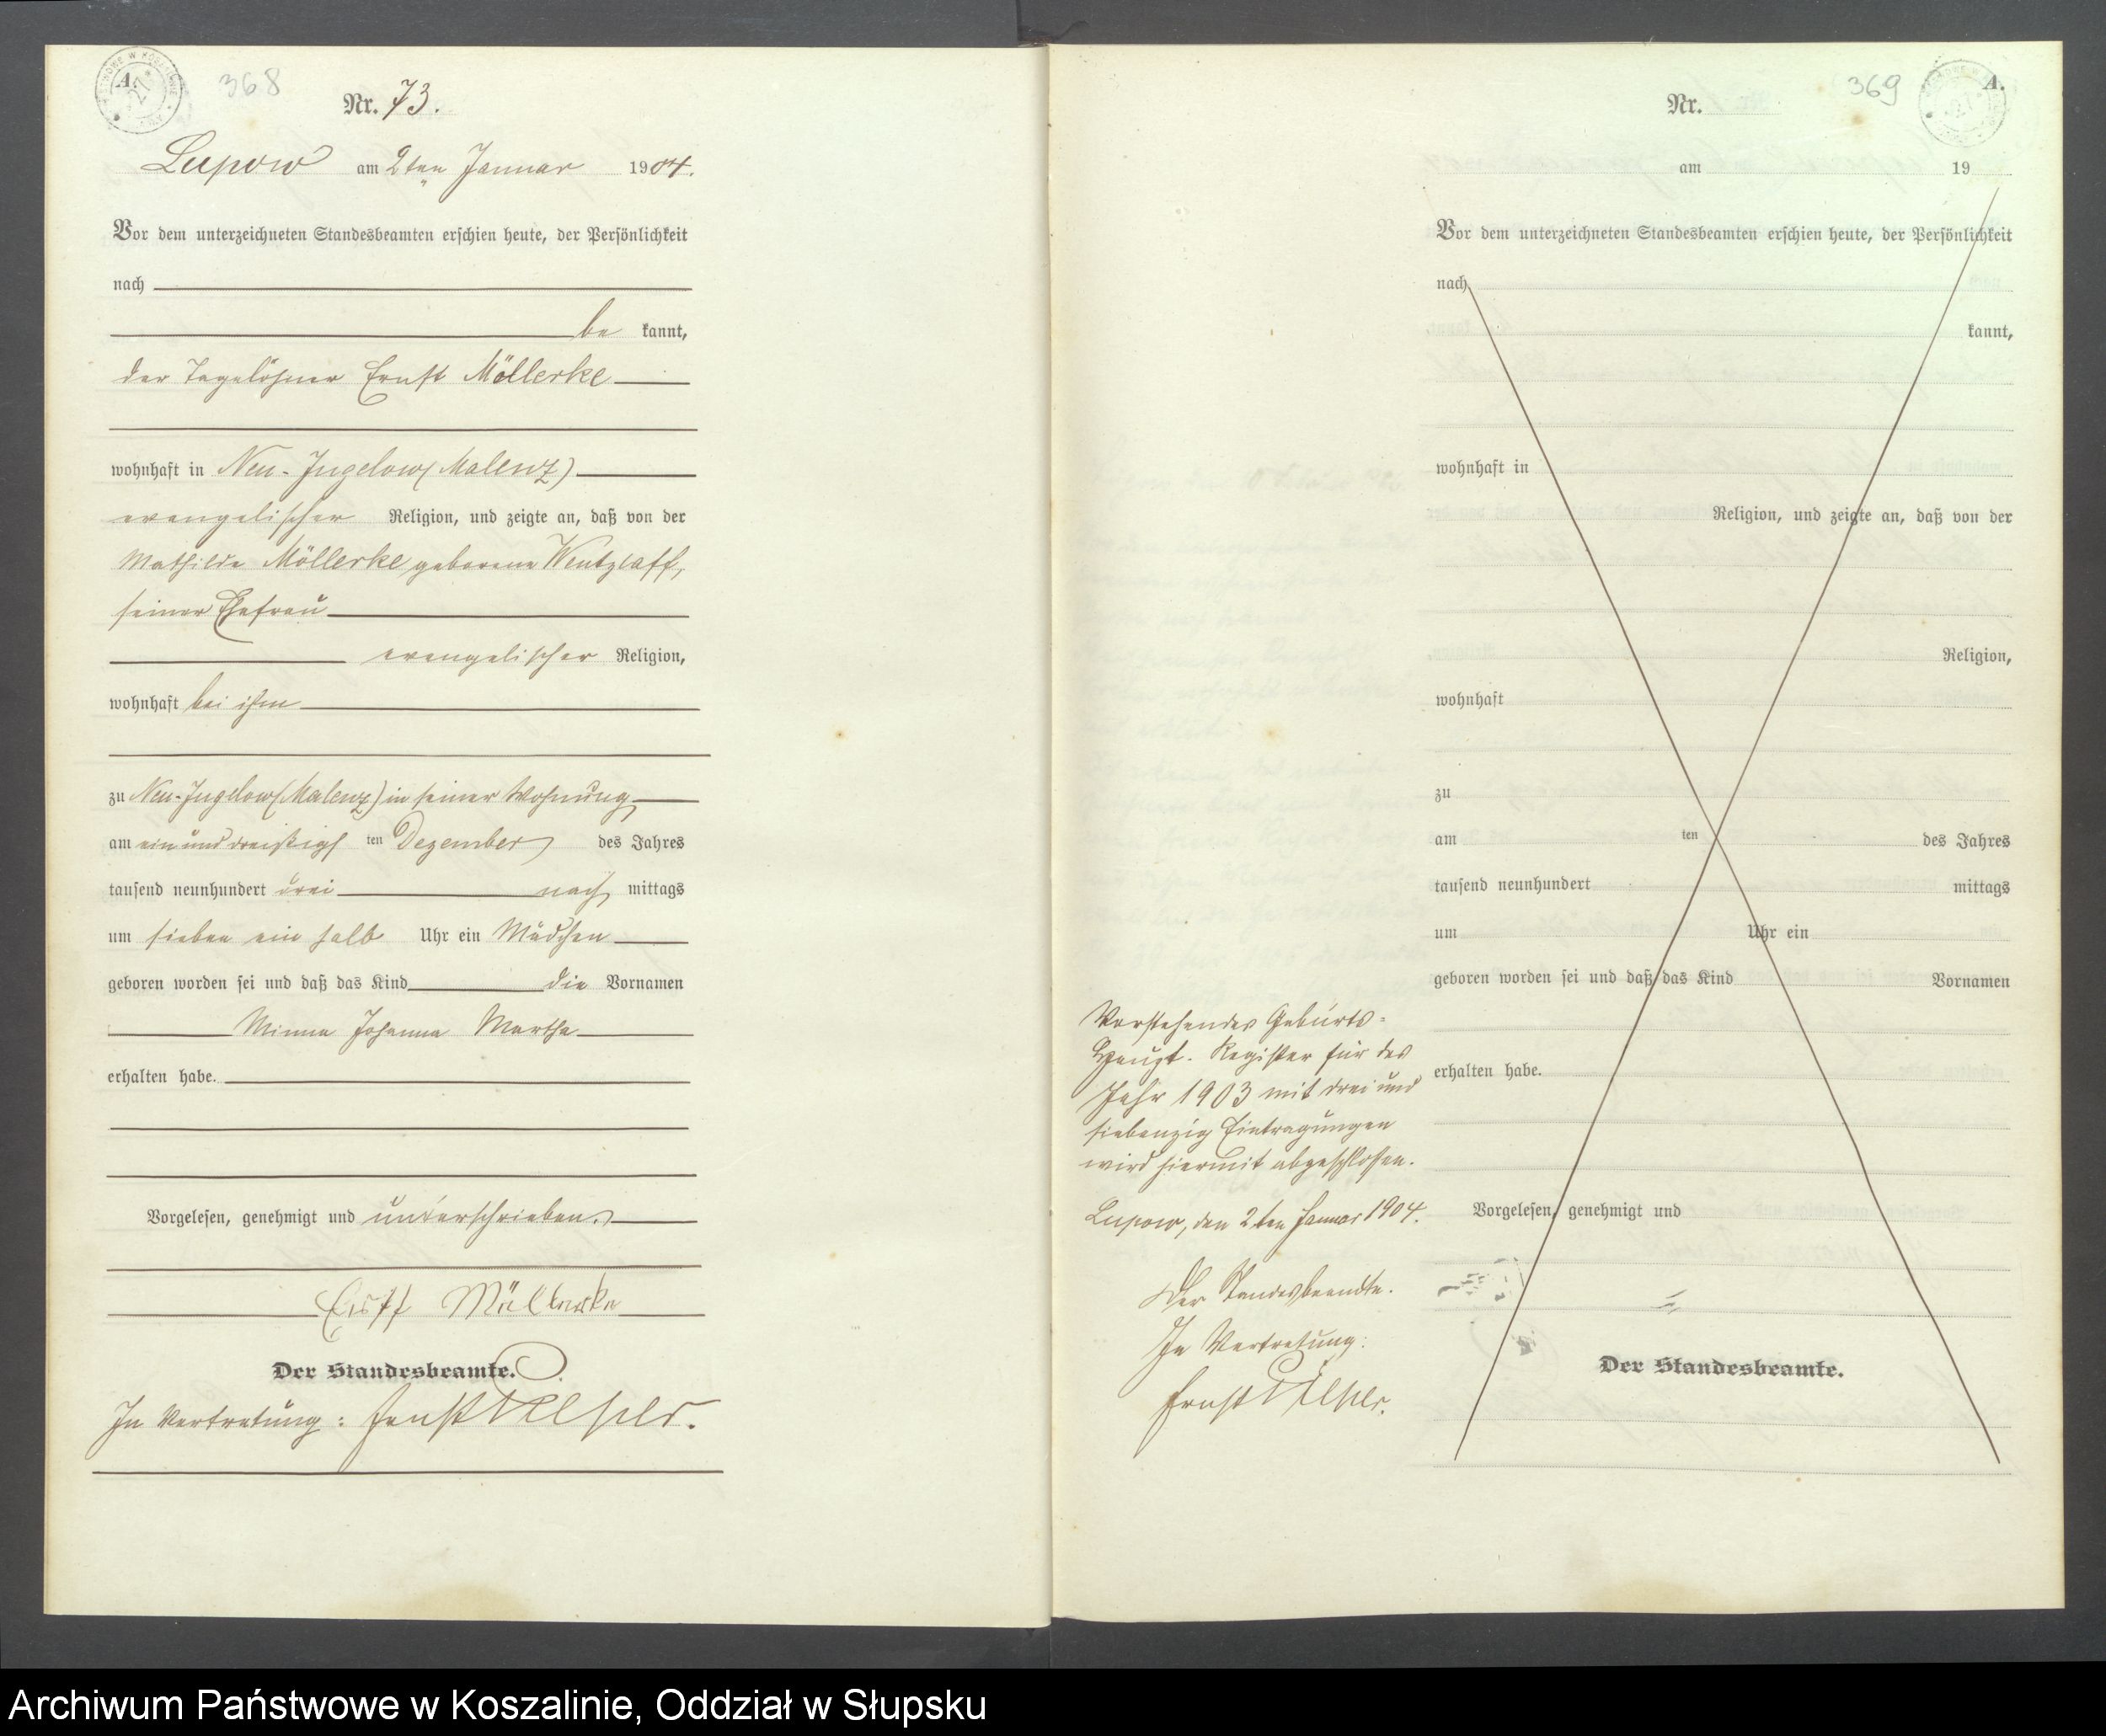 A.
368
Nr. 73.
Lupow am 2ten Januar 1904.
Vor dem unterzeichneten Standesbeamten erschien heute, der Persönlichkeit
nach
be kannt,
der Tagelöhner Ernst Möllerke
wohnhaft in Neu-Jugelow (Malenz)
evangelischer Religion, und zeigte an, daß von der
Mathilde Möllerke geborene Wentzlaff,
seiner Ehefrau
evangelischer Religion,
wohnhaft bei ihm
zu Neu-Jugelow (Malenz) in seiner Wohnung
am ein und dreißigs ten Dezember des Jahres
tausend neunhundert drei nach mittags
um sieben ein halb Uhr ein Mädchen
geboren worden sei und daß das Kind die Vornamen
Minna Johanna Martha
erhalten habe.
Vorgelesen, genehmigt und unterschrieben.
Ernst Möllerke
Der Standesbeamte.
In Vertretung: Ernst
369
A.
Nr.
am 19
Vor dem unterzeichneten Standesbeamten erschien heute, der Persönlichkeit
nach
kannt,
wohnhaft in
Religion, und zeigte an, daß von der
Religion,
wohnhaft
zu
am ten des Jahres
tausend neunhundert mittags
um Uhr ein
geboren worden sei und daß das Kind Vornamen
erhalten habe.
Vorgelesen, genehmigt und
Der Standesbeamte.
Vorstehendes Geburts-
Haupt-Register für das
Jahr 1903 mit drei und
siebenzig Eintragungen
wird hiermit abgeschlossen.
Lupow, den 2ten Januar 1904.
Der Standesbeamte.
In Vertretung:
Ernst
Archiwum Państwowe w Koszalinie, Oddział w Słupsku